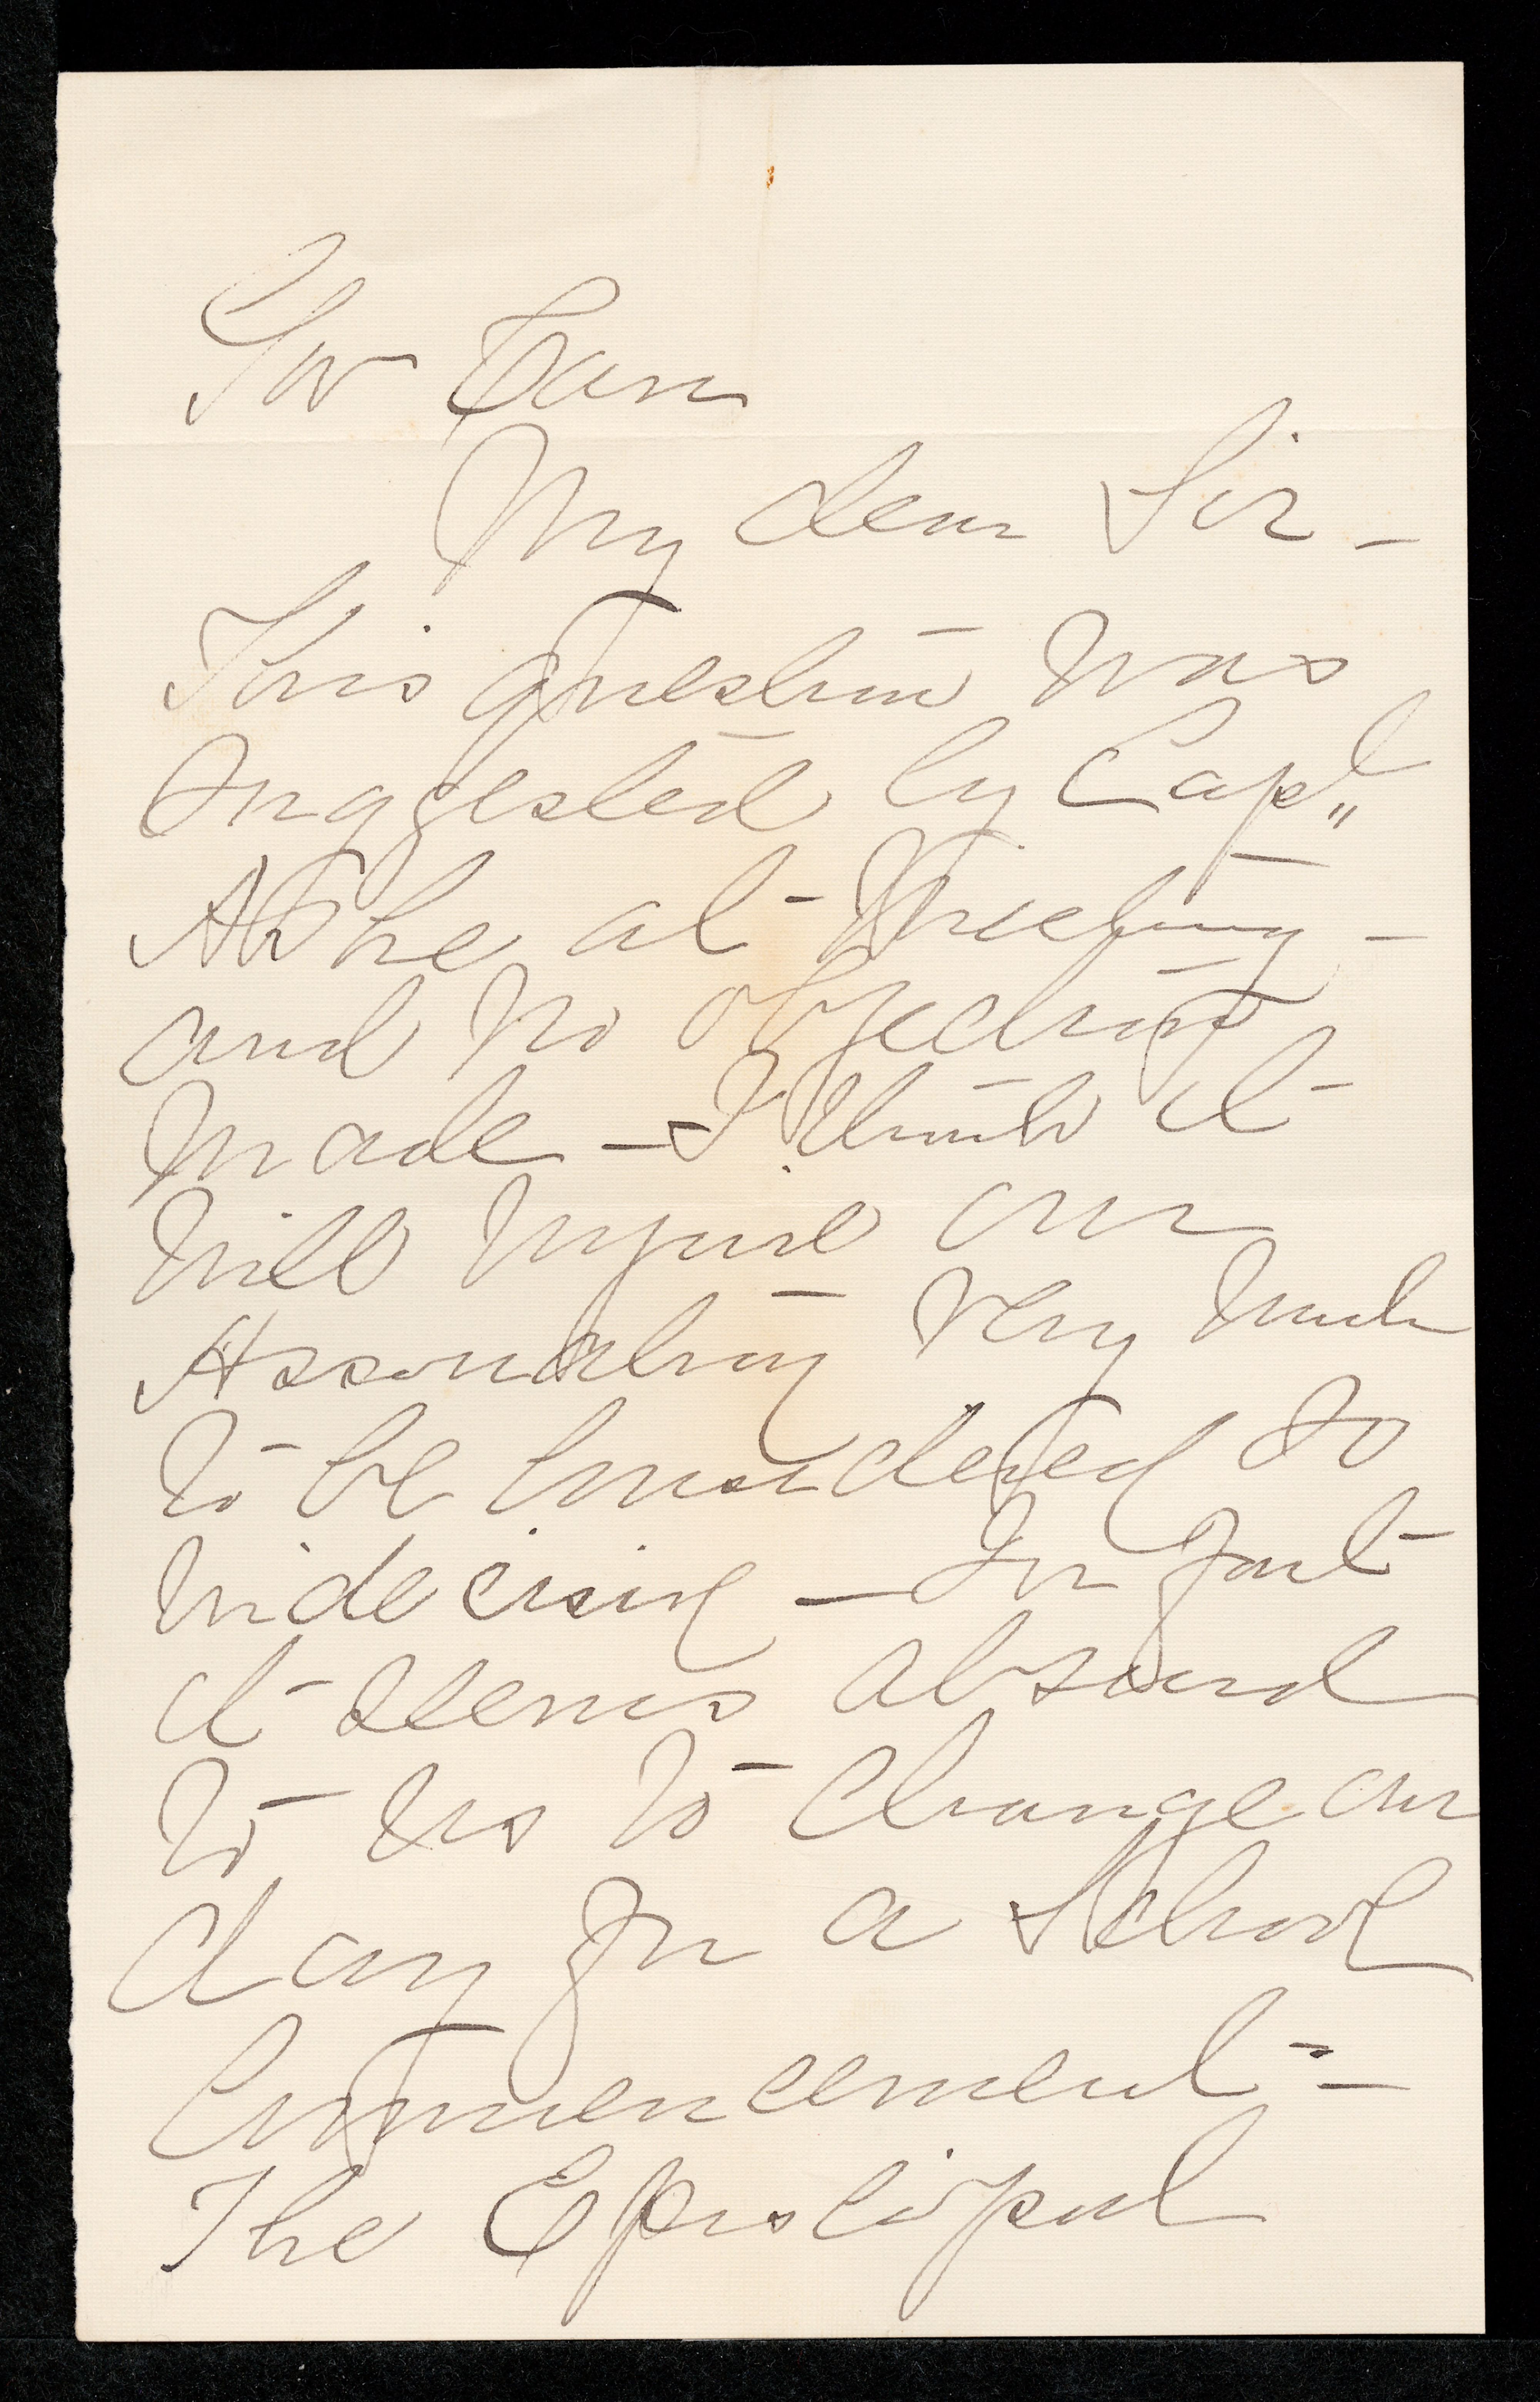 Gov Carr
My dear Sir -
This question was
suggested by Capt"
Ashe at Meeting -
and no objection
made - I think it
will injure our
Association very much
to be considered so
undecided - In fact
it seems absurd
to us to change our
day for a School
Commencement -
The Episcopal